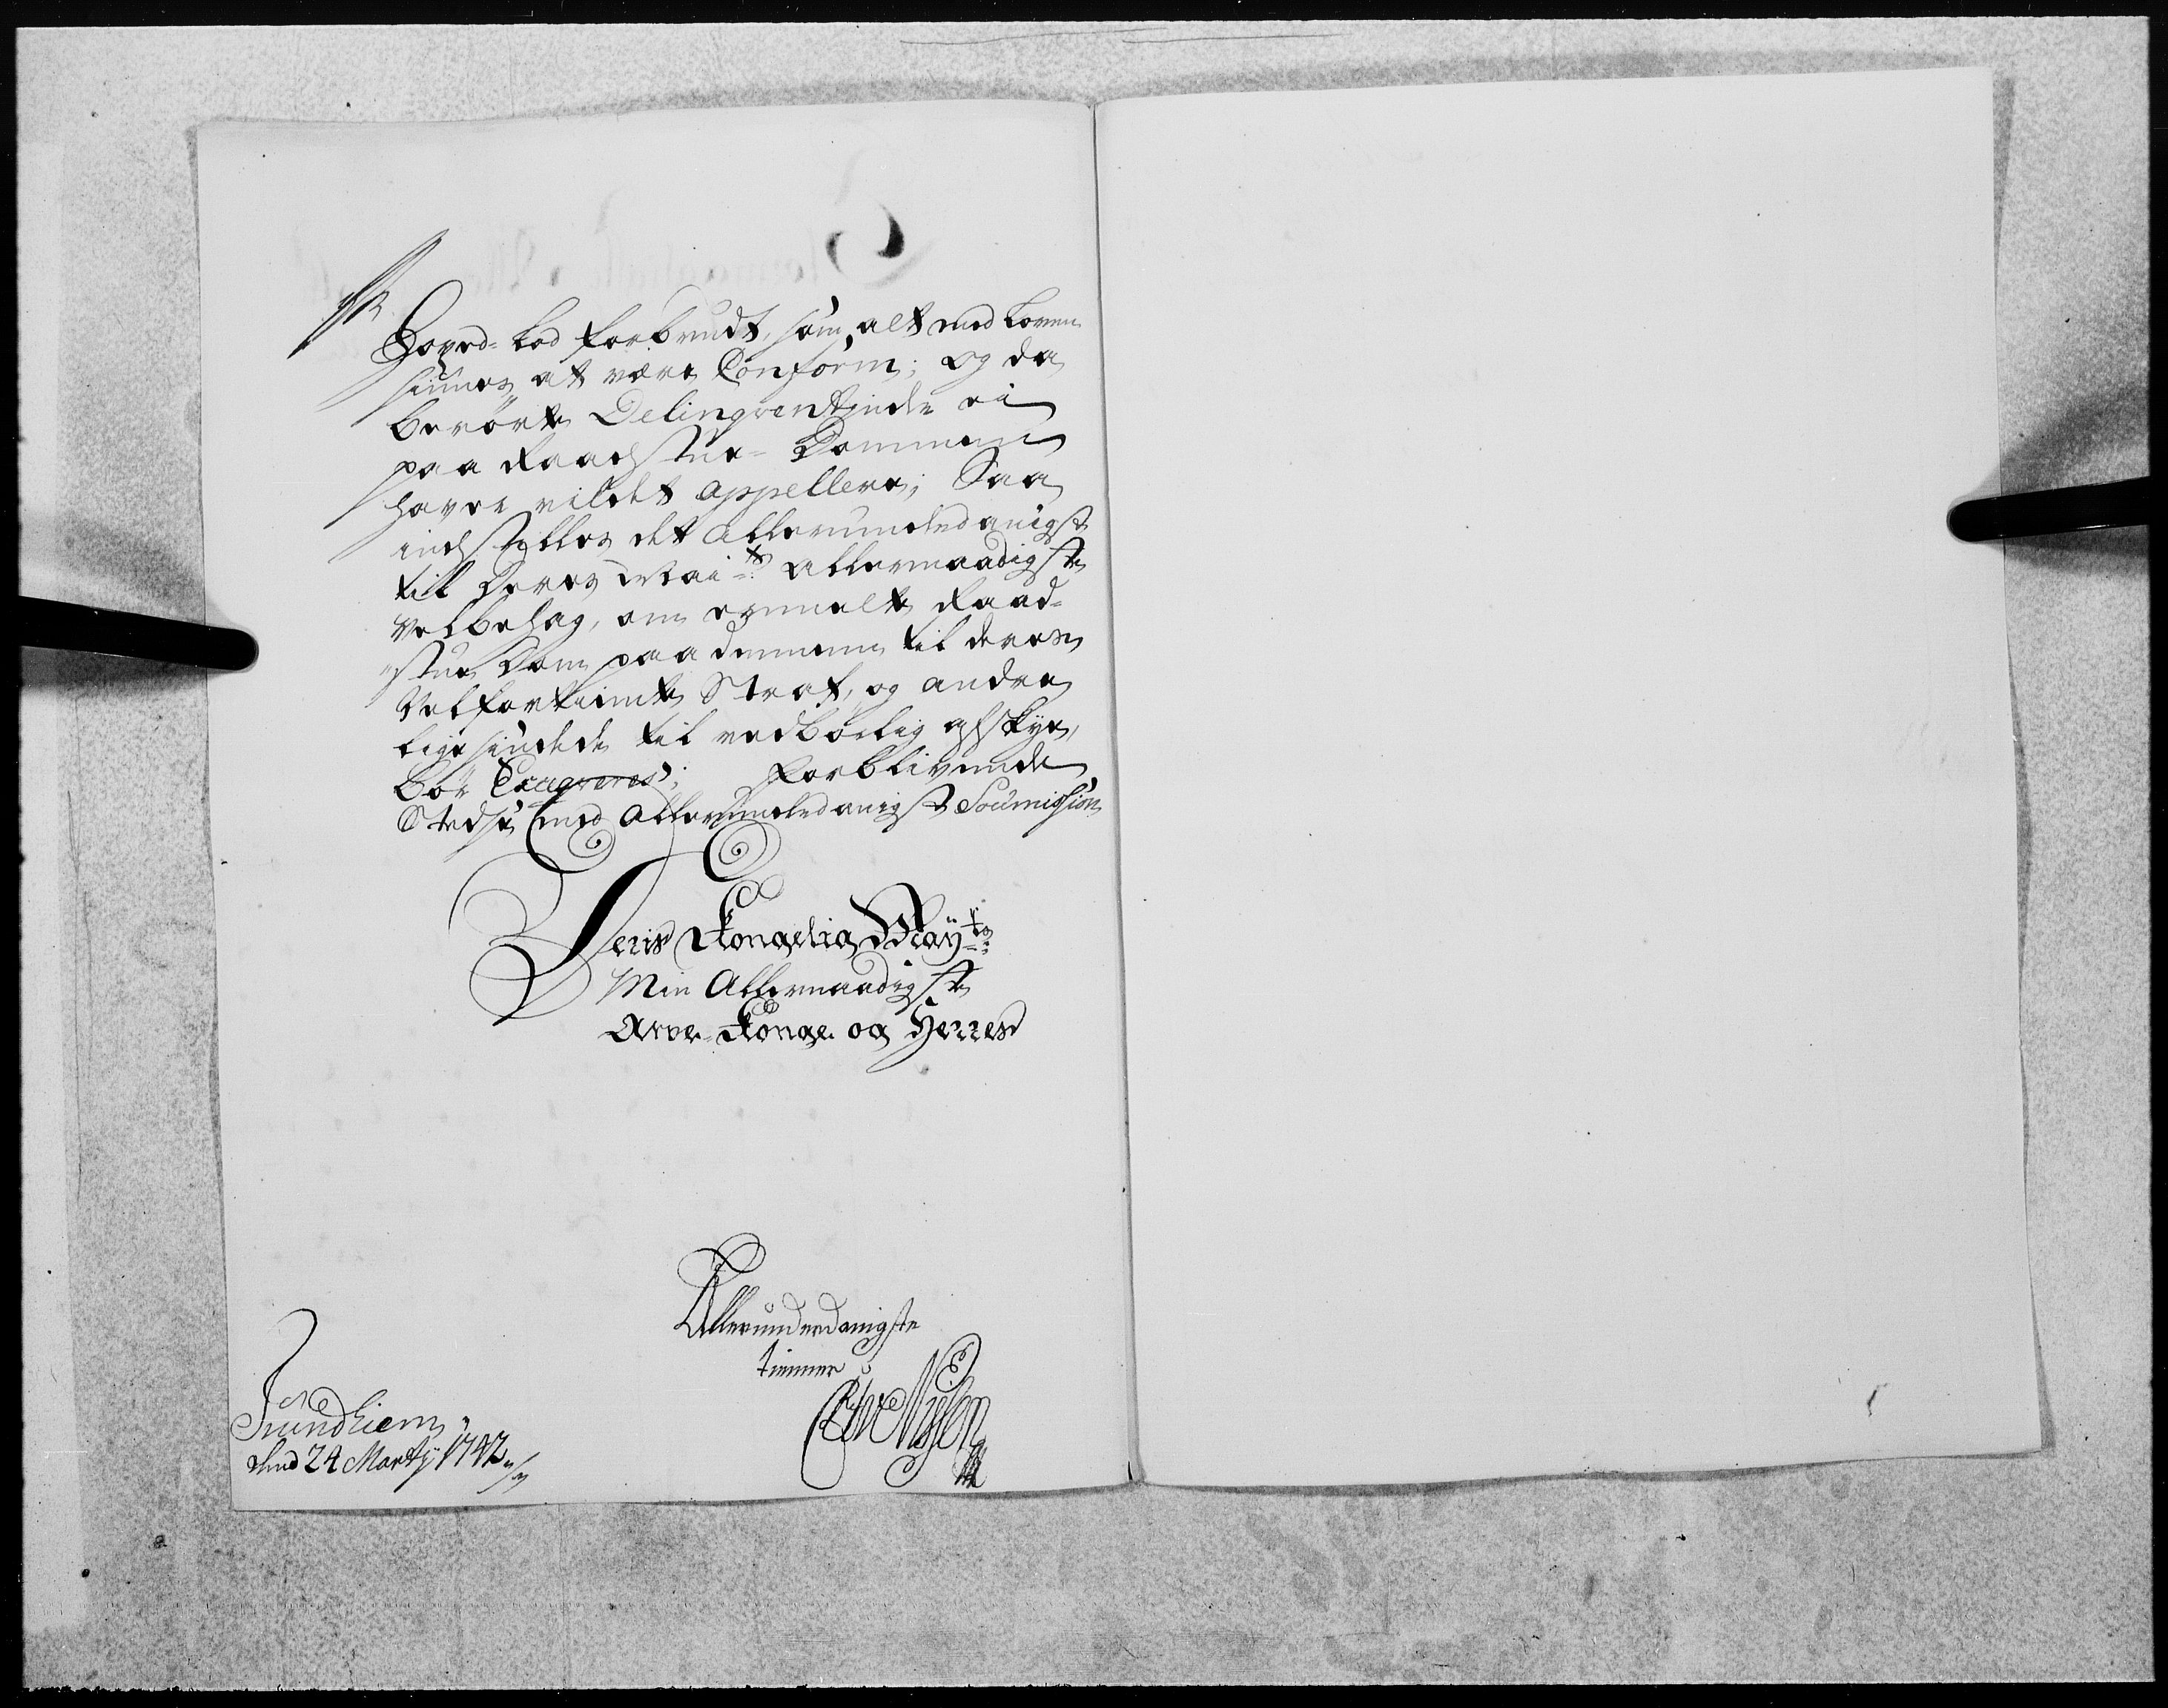 Hoved-Lod forbrudt, som alt med Loven
siunes at være Conform; og da
berørte Delinqventinde ei
paa Raadstue-Dommen
haver vildet appellere; Saa
indstilles det allerunderdanigst
til Deres Maits Allernaadigste
Velbehag, om ermelte Raad-
stue Dom paa dennem til deres
Velfortiente Straf, og andre
ligesindede til vedbørlig afskye,
bør Exeqveres; forblivende
Stedse med allerunderdanigst Soumission
Deris Kongelig Mayts
Min Allernaadigste
Arve-Konge og Herres
Allerunderdanigste
tienner
Trundhiem
dend 24 Martij 1742